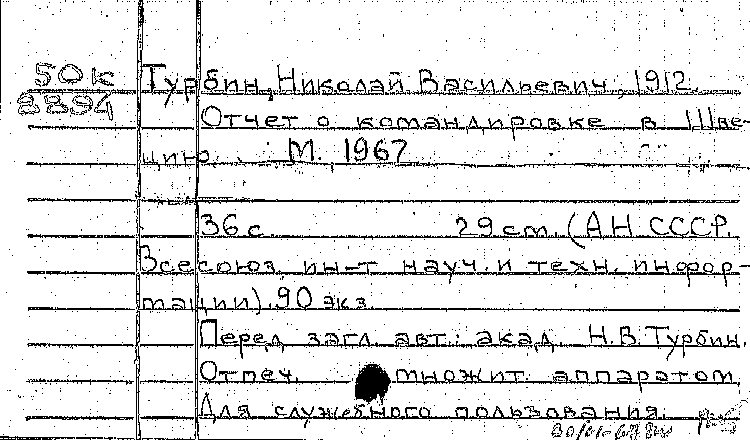 50к Турбин, Николай Васильевич, 1912
8894 Отчет о командировке в Шве-
цию. М. 1967
36 с. 29 см. (АН СССР.
Всесоюз. ин-т науч. и техн. инфор-
мации). 90 экз.
Перед загл. авт.: акад. Н.В. Турбин.
Отпеч. множит. аппаратом
Для служебного пользования.